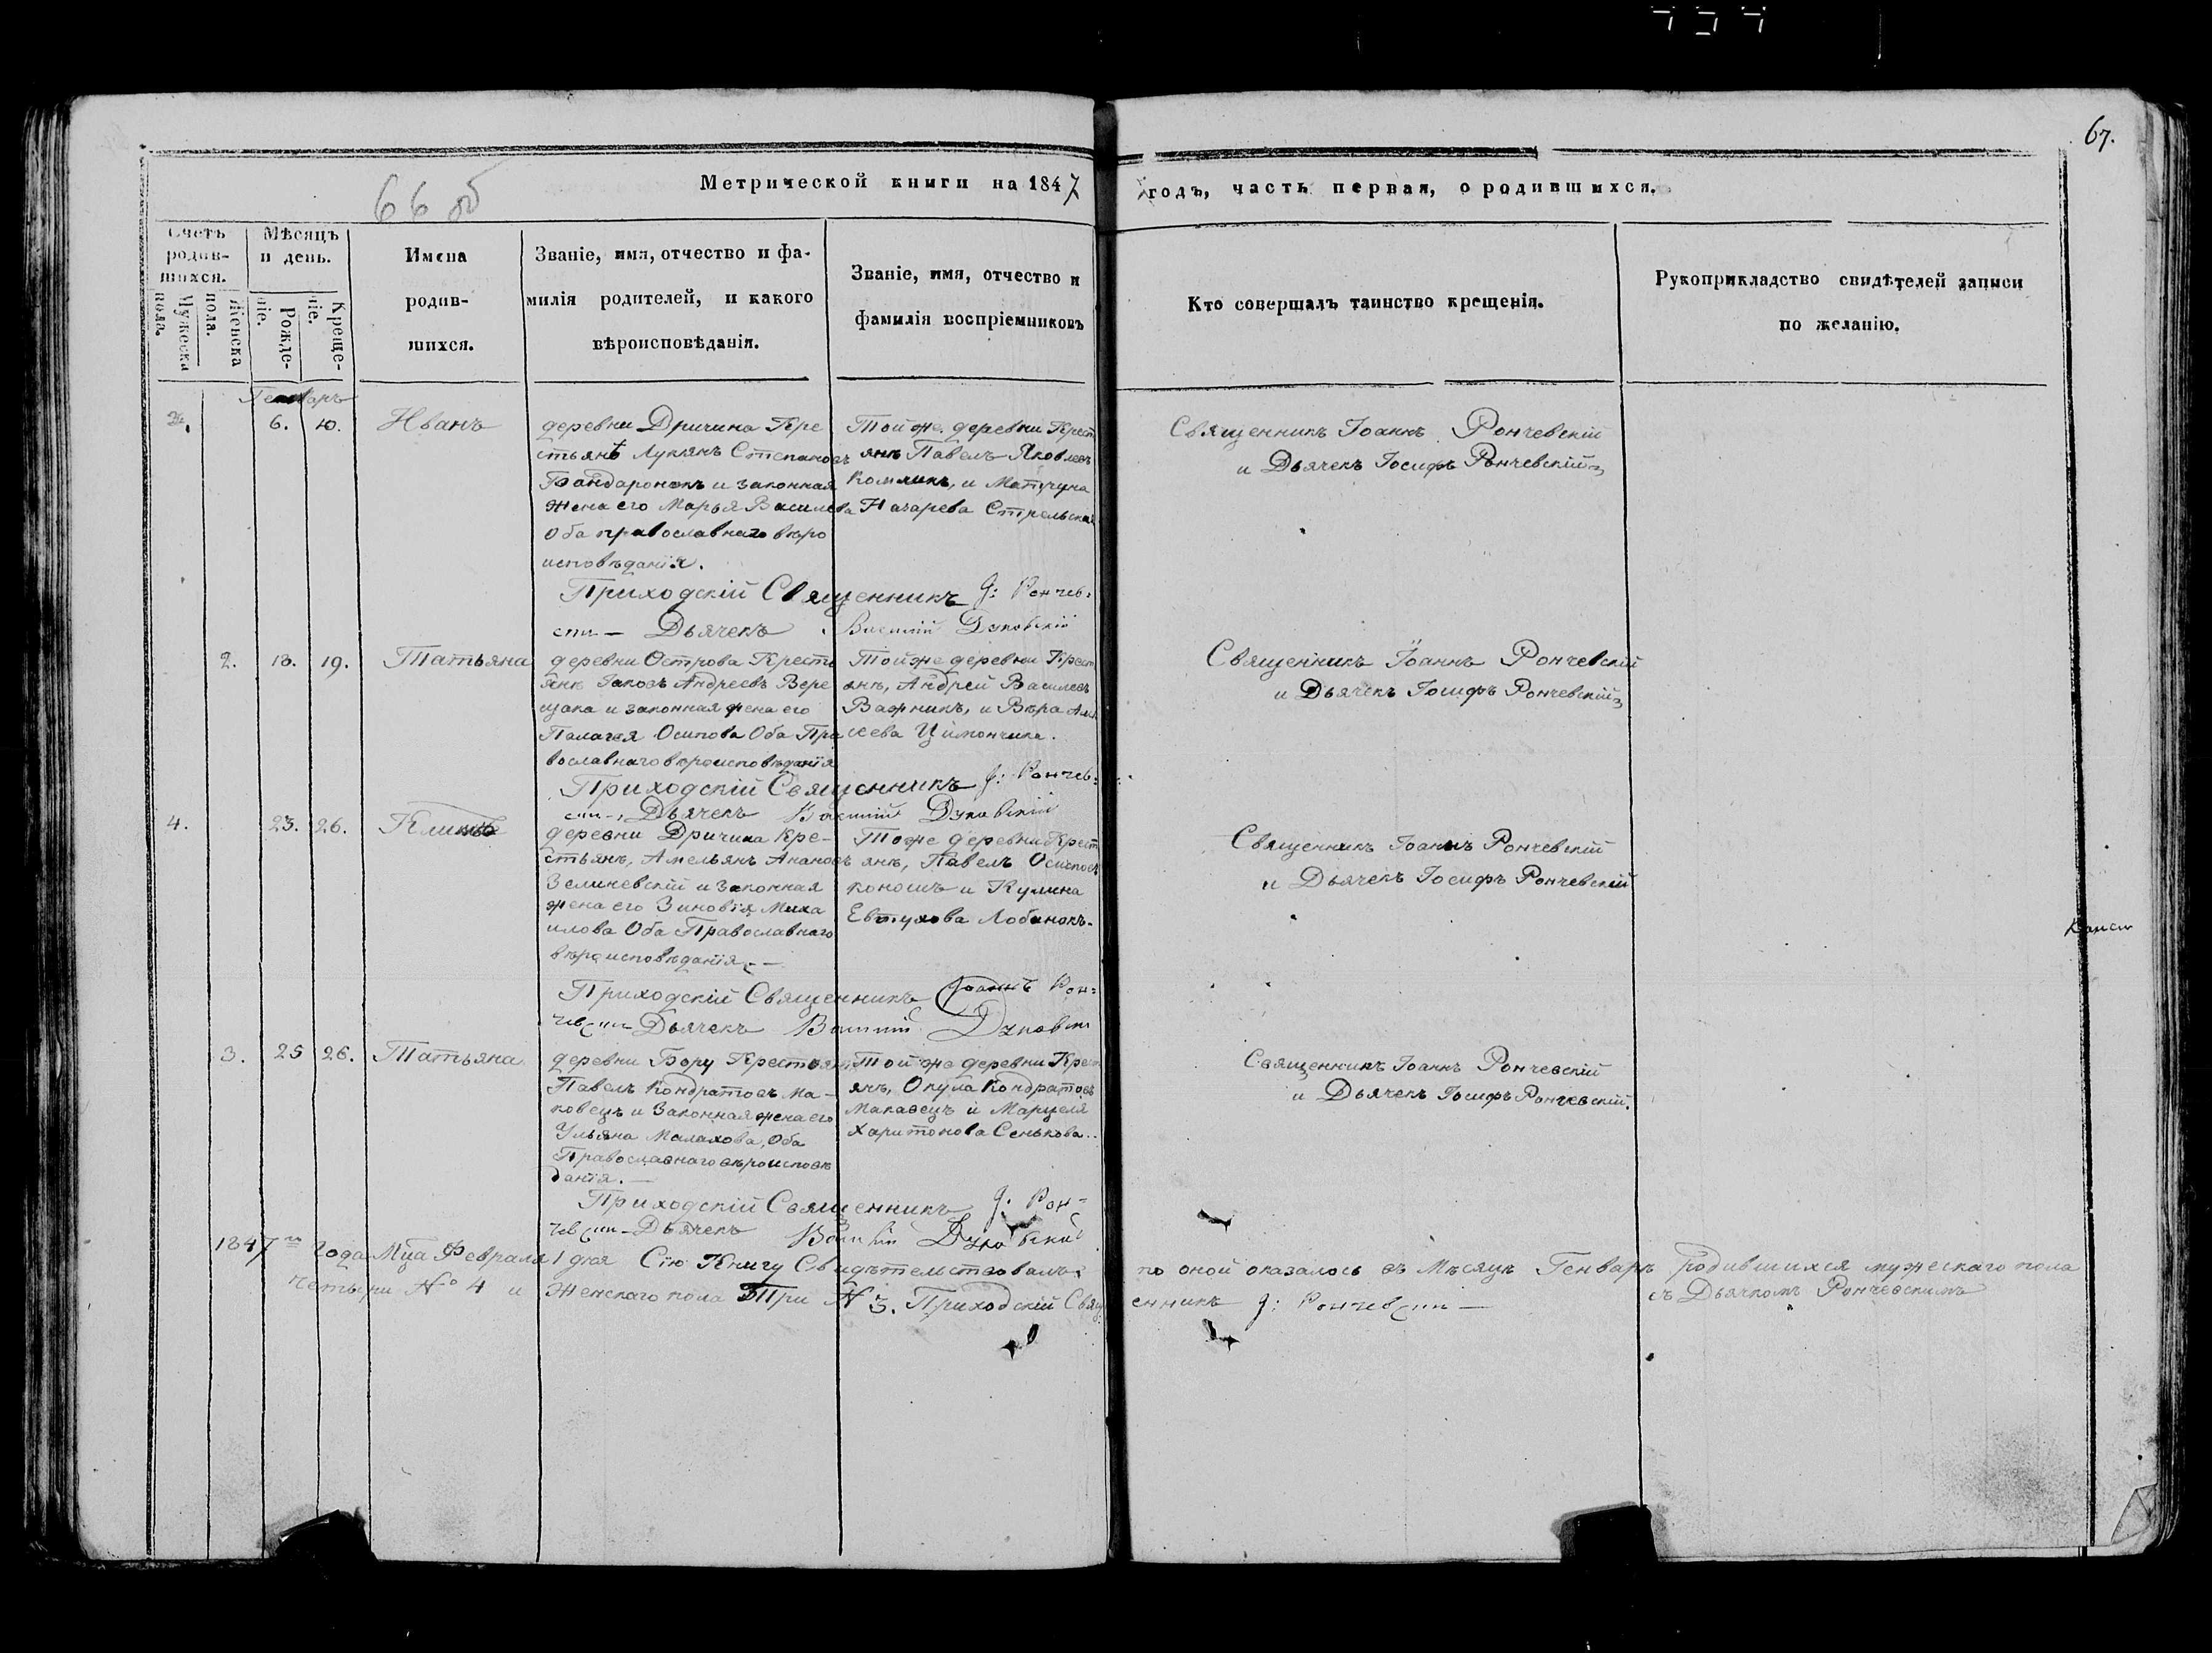 67.
66 об
Метрической книги на 1847 годъ, часть первая, о родившихся.
Счетъ родив-
шихся.
Мужеска пола.
Женска пола.
Мѣсяцъ и день.
Рожде-
ніе.
Креще-
ніе.
Имена
родив-
шихся.
Званіе, имя, отчество и фа-
милія родителей, и какого
вѣроисповѣданія.
Званіе, имя, отчество и
фамилія воспріемниковъ
Кто совершалъ таинство крещенія.
Рукоприкладство свидѣтелей записи
по желанію.
Генваръ
6. 10. Иванъ
деревни Дричина Кре
стьянъ Лукьянъ Степановъ
Бандаронокъ и законная
жена его Марья Василева
Оба православнаго вѣро
исповѣданія.
Той же деревни Крест
янъ Павелъ Яковлевъ
Комликъ, и Матруна
Назарева Стрельская
Священникъ Іоаннъ Рончевскій
и Дьячекъ Іосифъ Рончевскій
Приходскій Священникъ І: Рончев:
скій – Дьячекъ Василій Дуковскій
2. 13. 19. Татьяна
деревни Острова Кресть
янъ Іаковъ Андреевъ Вере
щака и законная жена его
Палагея Осипова Оба Пра
вославнаго вѣроисповѣданія
Той же деревни Крест
янъ, Андрей Василевъ
Важникъ, и Вѣра Але
ксева Цимончика.
Священникъ Іоаннъ Рончевскій
и Дьячекъ Іосифъ Рончевскій
Приходскій Священникъ І: Рончев:
скій – Дьячекъ Василій Дуковскій
4. 23. 26. Климъ
деревни Дричина Кре-
стьянъ, Амельянъ Анановъ
Зелиневскій и Законная
жена его Зиновія Миха
илова Оба Православнаго
вѣроисповѣданія. –
Тоже деревни Крест
янъ, Павелъ Осиповъ
Коношъ и Кулина
Евтухова Лобанокъ.
Священникъ Іоаннъ Рончевскій
и Дьячекъ Іосифъ Рончевскій
Приходскій Священникъ Іоаннъ Рон=
чевскій Дьячекъ Василій Дуковскій
3. 25 26. Татьяна
деревни Бору Крестьян
Павелъ Кондратовъ Ма-
ковецъ и Законная жена его
Ульяна Малахова, Оба
Православнаго вѣроисповѣ
данія. –
Той же деревни Крест
янъ, Окула Кондратовъ
Макавецъ и Марцеля
Харитонова Сенькова..
Священникъ Іоаннъ Рончевскій
и Дьячекъ Іосифъ Рончевскій.
Приходскій Священникъ І: Рон=
чевскій – Дьячекъ Василій Дуковскій
1847го года Мца Февраля 1 дня Сію Книгу Свидѣтельствовалъ: по оной оказалось въ Мѣсяцѣ Генварѣ родившихся мужескаго пола
четыри № 4 и Женскаго пола Три № 3. Приходскій Священникъ І: Рончевскій – съ Дьячкомъ Рончевскимъ